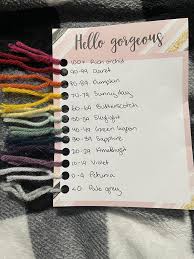 Hello gorgeous
100+ Rich orchid
90-99 Claret
80-89 Pumpkin
70-79 Sunny day
60-69 Butterscotch
50-59 Skylight
40-49 Green
30-39 Sapphire
20-29 Amethyst
10-19 Violet
0-9 Petunia
<0 Pale grey